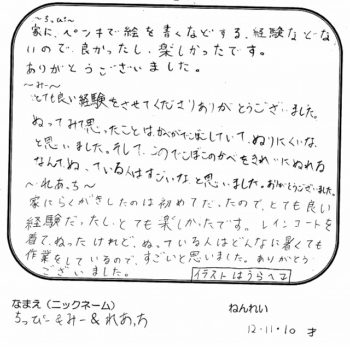 ~ちっぴ~
家に、ペンキで絵を書くなどする、経験などな
いので、良かったし、楽しかったです。
ありがとうございました。
~みー~
とても良い経験をさせてくださりありがとうございました。
ぬってみて思ったことは、かべがでこぼこしていて、ぬりにくいな、
と思いました。そして、このでこぼこのかべをきれいにぬれる
なんて、ぬっている人はすごいな、と思いました。ありがとうございました。
~れぁっち~
家にらくがきしたのは初めてだったので、とても良い
経験だったし、とても楽しかったです。レインコートを
着て、ぬったけれど、ぬっている人はどんなに暑くても
作業をしているので、すごいと思いました。ありがとう
ございました。
イラストはうらへつ
なまえ（ニックネーム） ねんれい
ちっぴー&みー&れぁっち 12・11・10 才